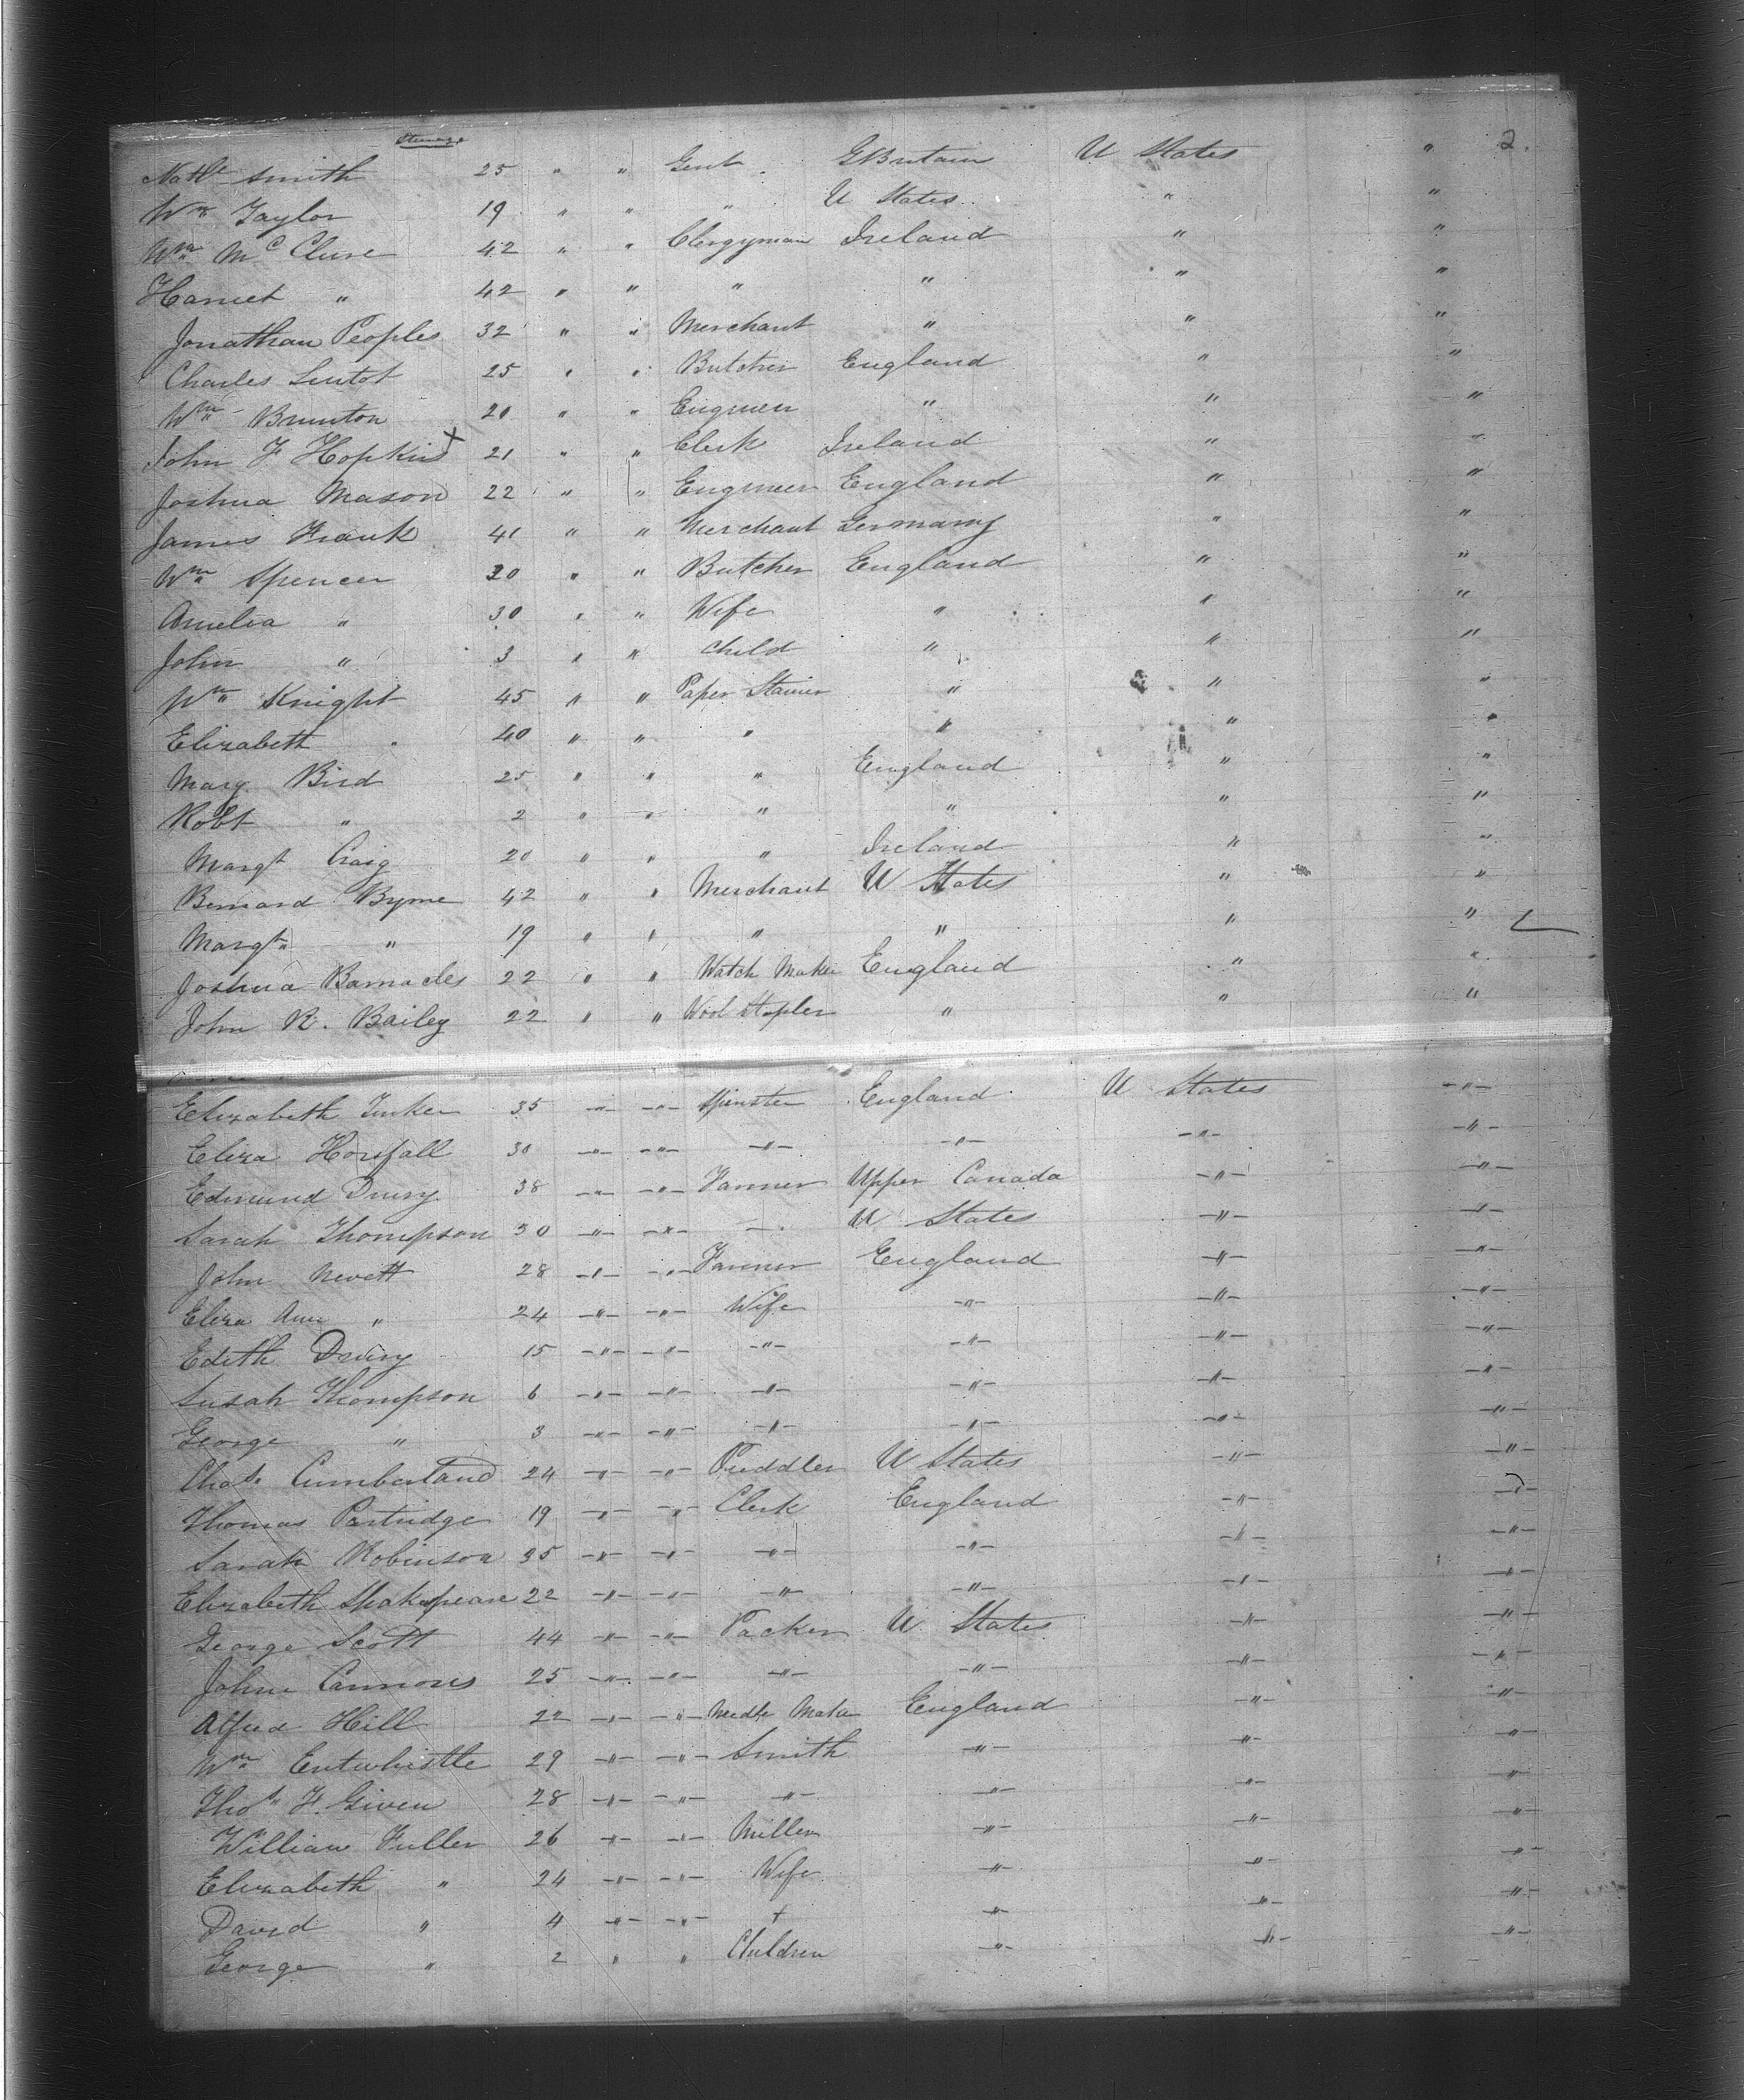 Steerage
Nathl Smith 25 " " Gent. G Britain U States " 2.
Wm Taylor 19 " " " U States " "
Wm McClure 42 " " Clergyman Ireland " "
Harriet " 42 " " " " " "
Jonathan Peoples 32 " " Merchant " " "
Charles Sentot 25 " " Butcher England " "
Wm Brunton 20 " " Engineer " " "
John F Hopkins 21 " " Clerk Ireland " "
Joshua Mason 22 " " Engineer England " "
James Frank 41 " " Merchant Germany " "
Wm Spencer 30 " " Butcher England " "
Amelia " 30 " " Wife " " "
John " 3 " " Child " " "
Wm Knight 45 " " Paper Stainer " " "
Elizabeth " 40 " " " " " "
Marg. Bird 25 " " " England " "
Robt " 2 " " " " " "
Margt Craig 20 " " " Ireland " "
Bernard Byrne 42 " " Merchant U States " "
Margt " 19 " " " " " "
Joshua Barnacles 22 " " Watch Maker England " "
John R. Bailey 22 " " Wool Stapler " " "
Elizabeth Tinker 35 -"- -"- Spinster England U States -"-
Eliza Horsfall 30 -"- -"- -"- -"- -"- -"-
Edmund Drury 38 -"- -"- Farmer Upper Canada -"- -"-
Sarah Thompson 30 -"- -"- -. U States -"- -"-
John Nevett 28 -"- -"- Farmer England -"- -"-
Eliza Ann " 24 -"- -"- Wife -"- -"- -"-
Edith Drury 15 -"- -"- -"- -"- -"- -"-
Susah Thompson 6 -"- -"- -"- -"- -"- -"-
George " 3 -"- -"- -"- -"- -"- -"-
Chas. Cumberland 24 -"- -"- Puddler U States -"- -"-
Thomas Partridge 19 -"- -"- Clerk England -"- -"-
Sarah Robinson 35 -"- -"- -"- -"- -"- -"-
Elizabeth Shakspeare 22 -"- -"- -"- -"- -"- -"-
George Scott 44 -"- -"- Packer U States -"- -"-
John Cannons 25 -"- -"- -"- -"- -"- -"-
Alfred Hill 22 -"- -"- Needle Maker England -"- -"-
Wm Entwhistle 29 -"- -"- Smith -"- -"- -"-
Thos. F. Given 28 -"- -"- -"- -"- -"- -"-
William Fuller 26 -"- -"- Miller -"- -"- -"-
Elizabeth " 24 -"- -"- Wife -"- -"- -"-
David " 4 -"- -"- + -"- -"- -"-
George " 2 " " Children -"- -"- -"-